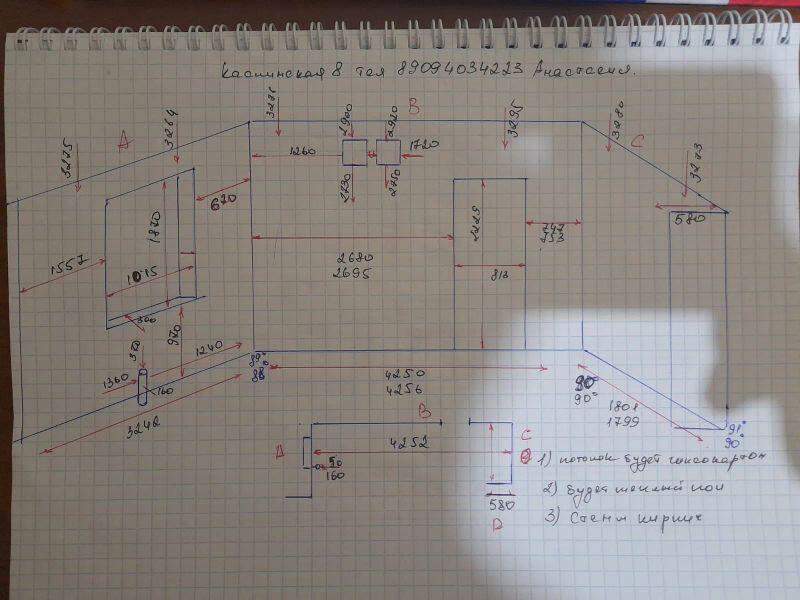 Каспинская 8 тел 89094034223 Анастасия.
A
B
C
3275
3264
3276
2900
2920
3295
3280
3273
1260
1720
2730
2750
670
1870
1557
1015
300
970
2680
2695
2229
813
747
753
580
370
1240
1360
160
3242
89°
88°
4250
4256
90°
90°
1801
1799
91°
90°
A
B
C
4252
50
160
580
D
1) потолок будет гипсокартон
2) будет теплый пол
3) Стены кирпич